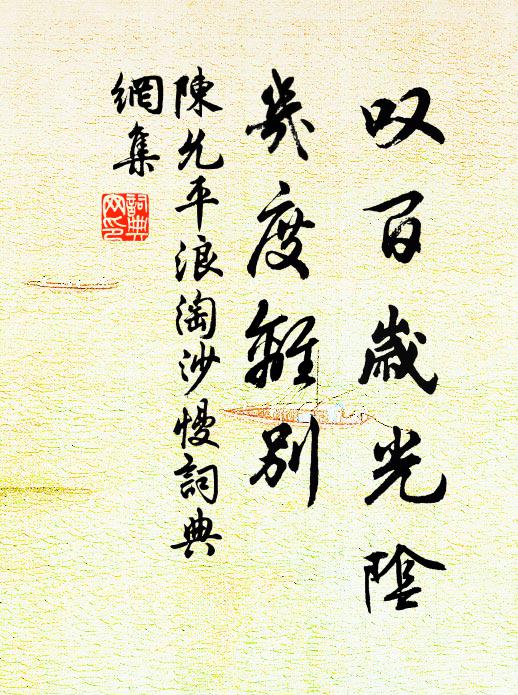 叹百歲光陰
幾度離別
陳允平浪淘沙慢詞典
網集
詞典
网印